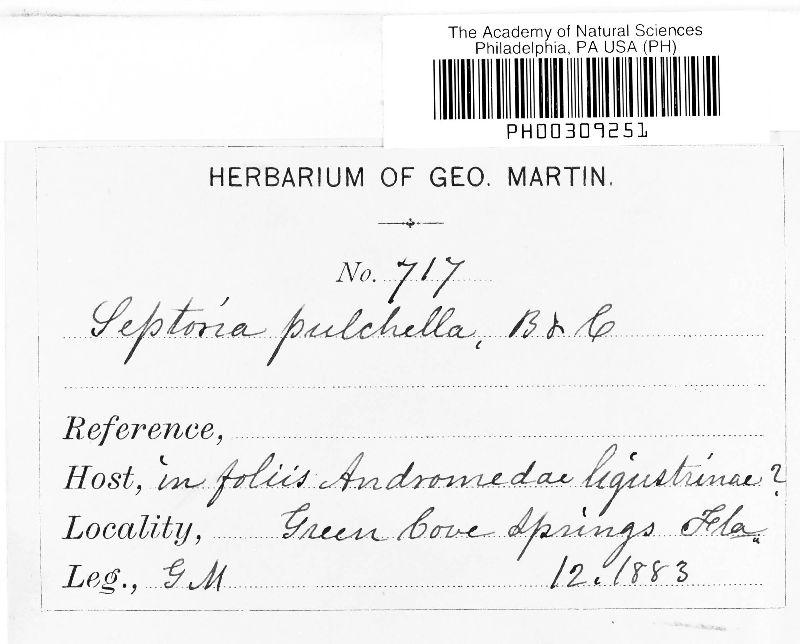 The Academy of Natural Sciences
Philadelphia, PA USA (PH)
PH00309251
HERBARIUM OF GEO. MARTIN.
No. 717
Septoria pulchella, B & C
Reference,
Host, in foliis Andromedae ligustrinae?
Locality, Green Cove Springs Fla.
Leg., G M 12.1883